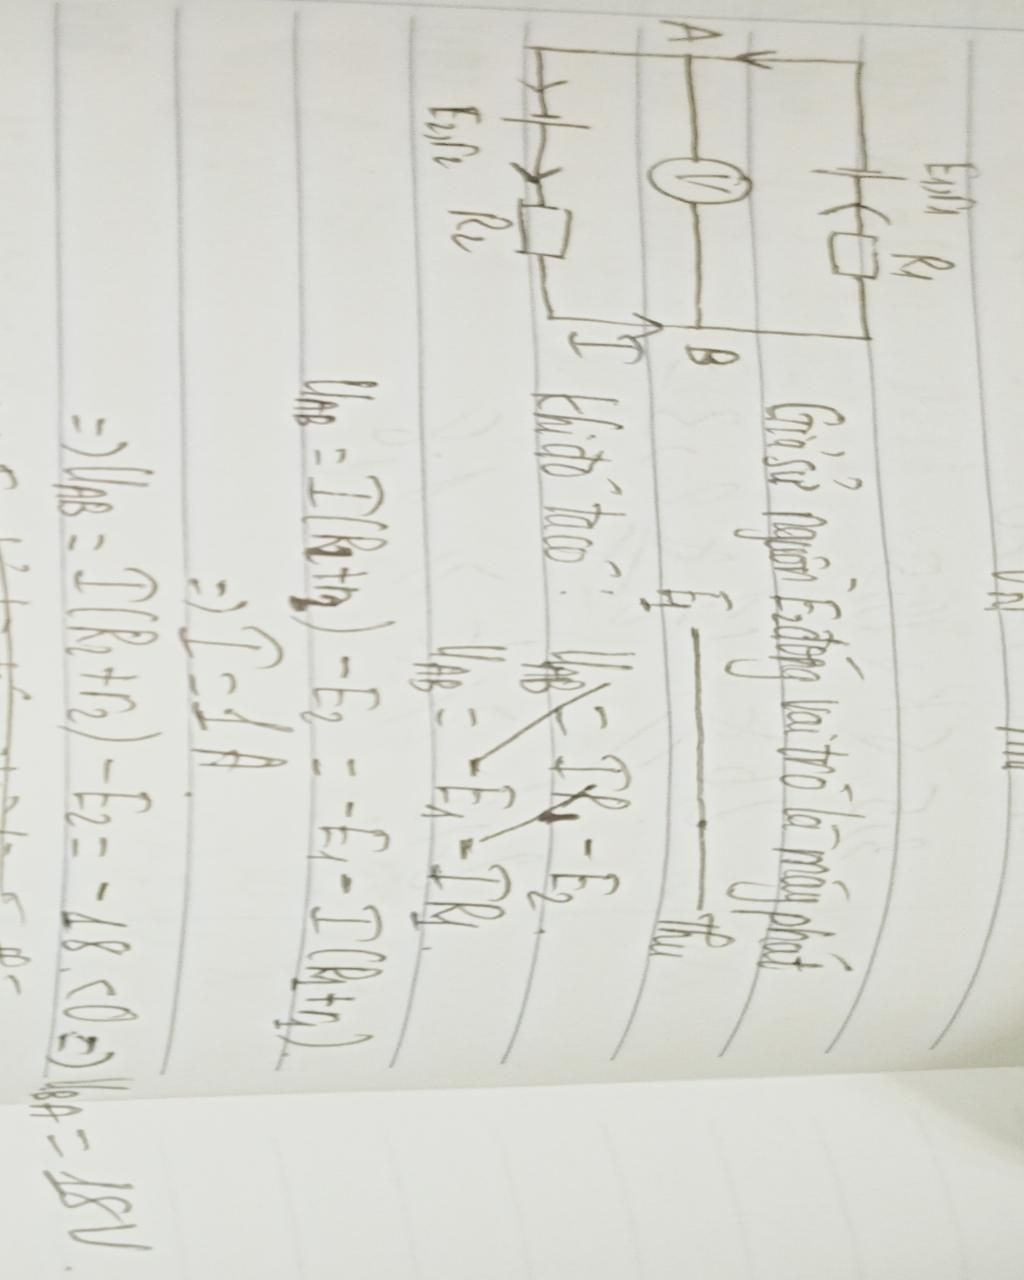 E₁,r₁ R₁
A
V
B
E₂,r₂ R₂
I
Giả sử nguồn E₂ đóng vai trò là máy phát
E₁ thu
Khi đó ta có:
U_AB = -E₁ - IR₁
U_AB = I(R₂+r₂) - E₂ = -E₁ - I(R₁+r₁)
=> I = 1 A
=> U_AB = I(R₂+r₂) - E₂ = -18 < 0 => U_BA = 18V.